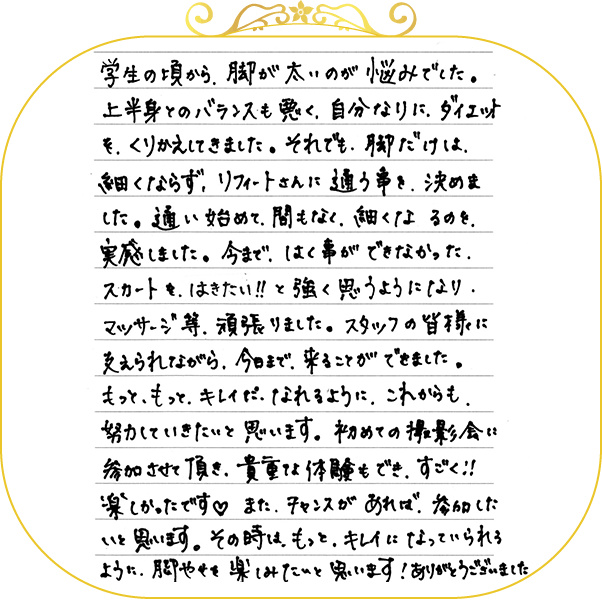 学生の頃から、脚が太いのが悩みでした。
上半身とのバランスも悪く、自分なりに、ダイエット
を、くりかえしてきました。それでも、脚だけは、
細くならず、リフィートさんに通う事を、決めま
した。通い始めて、間もなく、細くなるのを、
実感しました。今まで、はく事ができなかった、
スカートを、はきたい!!と強く思うようになり、
マッサージ等、頑張りました。スタッフの皆様に
支えられながら、今日まで、来ることができました。
もっと、もっと、キレイに、なれるように、これからも、
努力していきたいと思います。初めての撮影会に
参加させて頂き、貴重な体験もでき、すごく!!
楽しかったです♡ また、チャンスがあれば、参加した
いと思います。その時は、もっと、キレイになっていられる
ように、脚やせを楽しみたいと思います!ありがとうございました